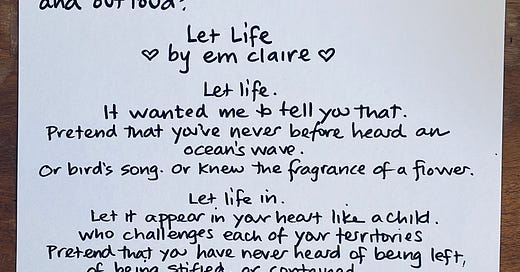 and out loud?
Let Life
♡ by em claire ♡
Let life.
It wanted me to tell you that.
Pretend that you've never before heard an
ocean's wave.
Or bird's song. Or knew the fragrance of a flower.
Let life in.
Let it appear in your heart like a child.
who challenges each of your territories
Pretend that you have never heard of being left,
of being stifled, or contained